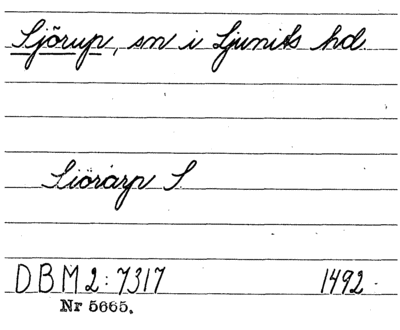 Sjörup, sn i Ljunits hd.
Siörarp S.
DBM 2:7317 1492
Nr 5665.